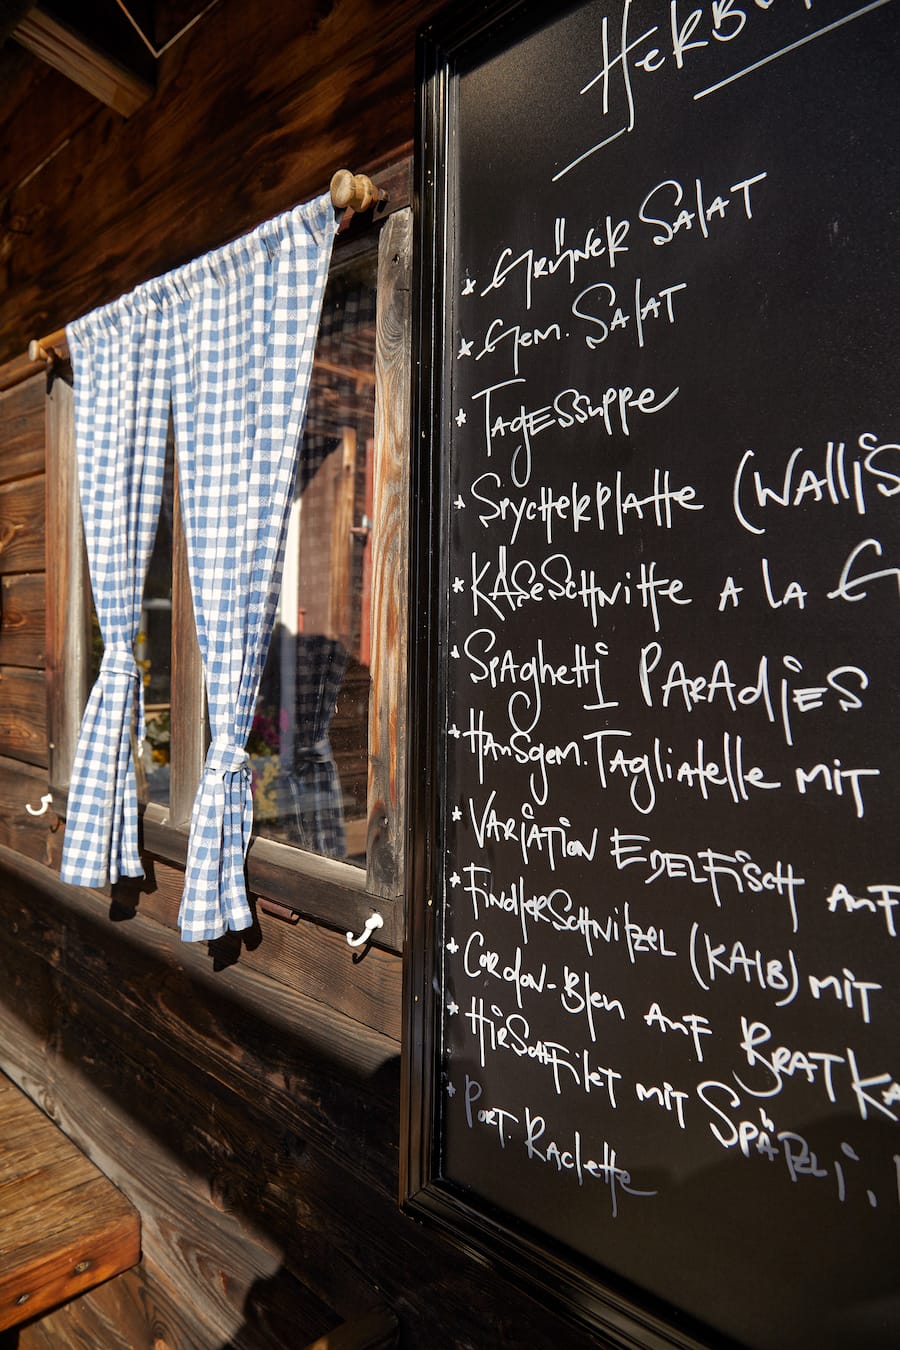 * Grüner Salat
* Gem. Salat
* Tagessuppe
* Spycherplatte
* Käseschnitte a la
* Spaghetti Paradies
* Hausgem. Tagliatelle mit
* Variation Edelfisch auf
* Findlerschnitzel (Kalb) mit
* Cordon-Bleu auf
* Hirschfilet mit Späzli,
* Port. Raclette